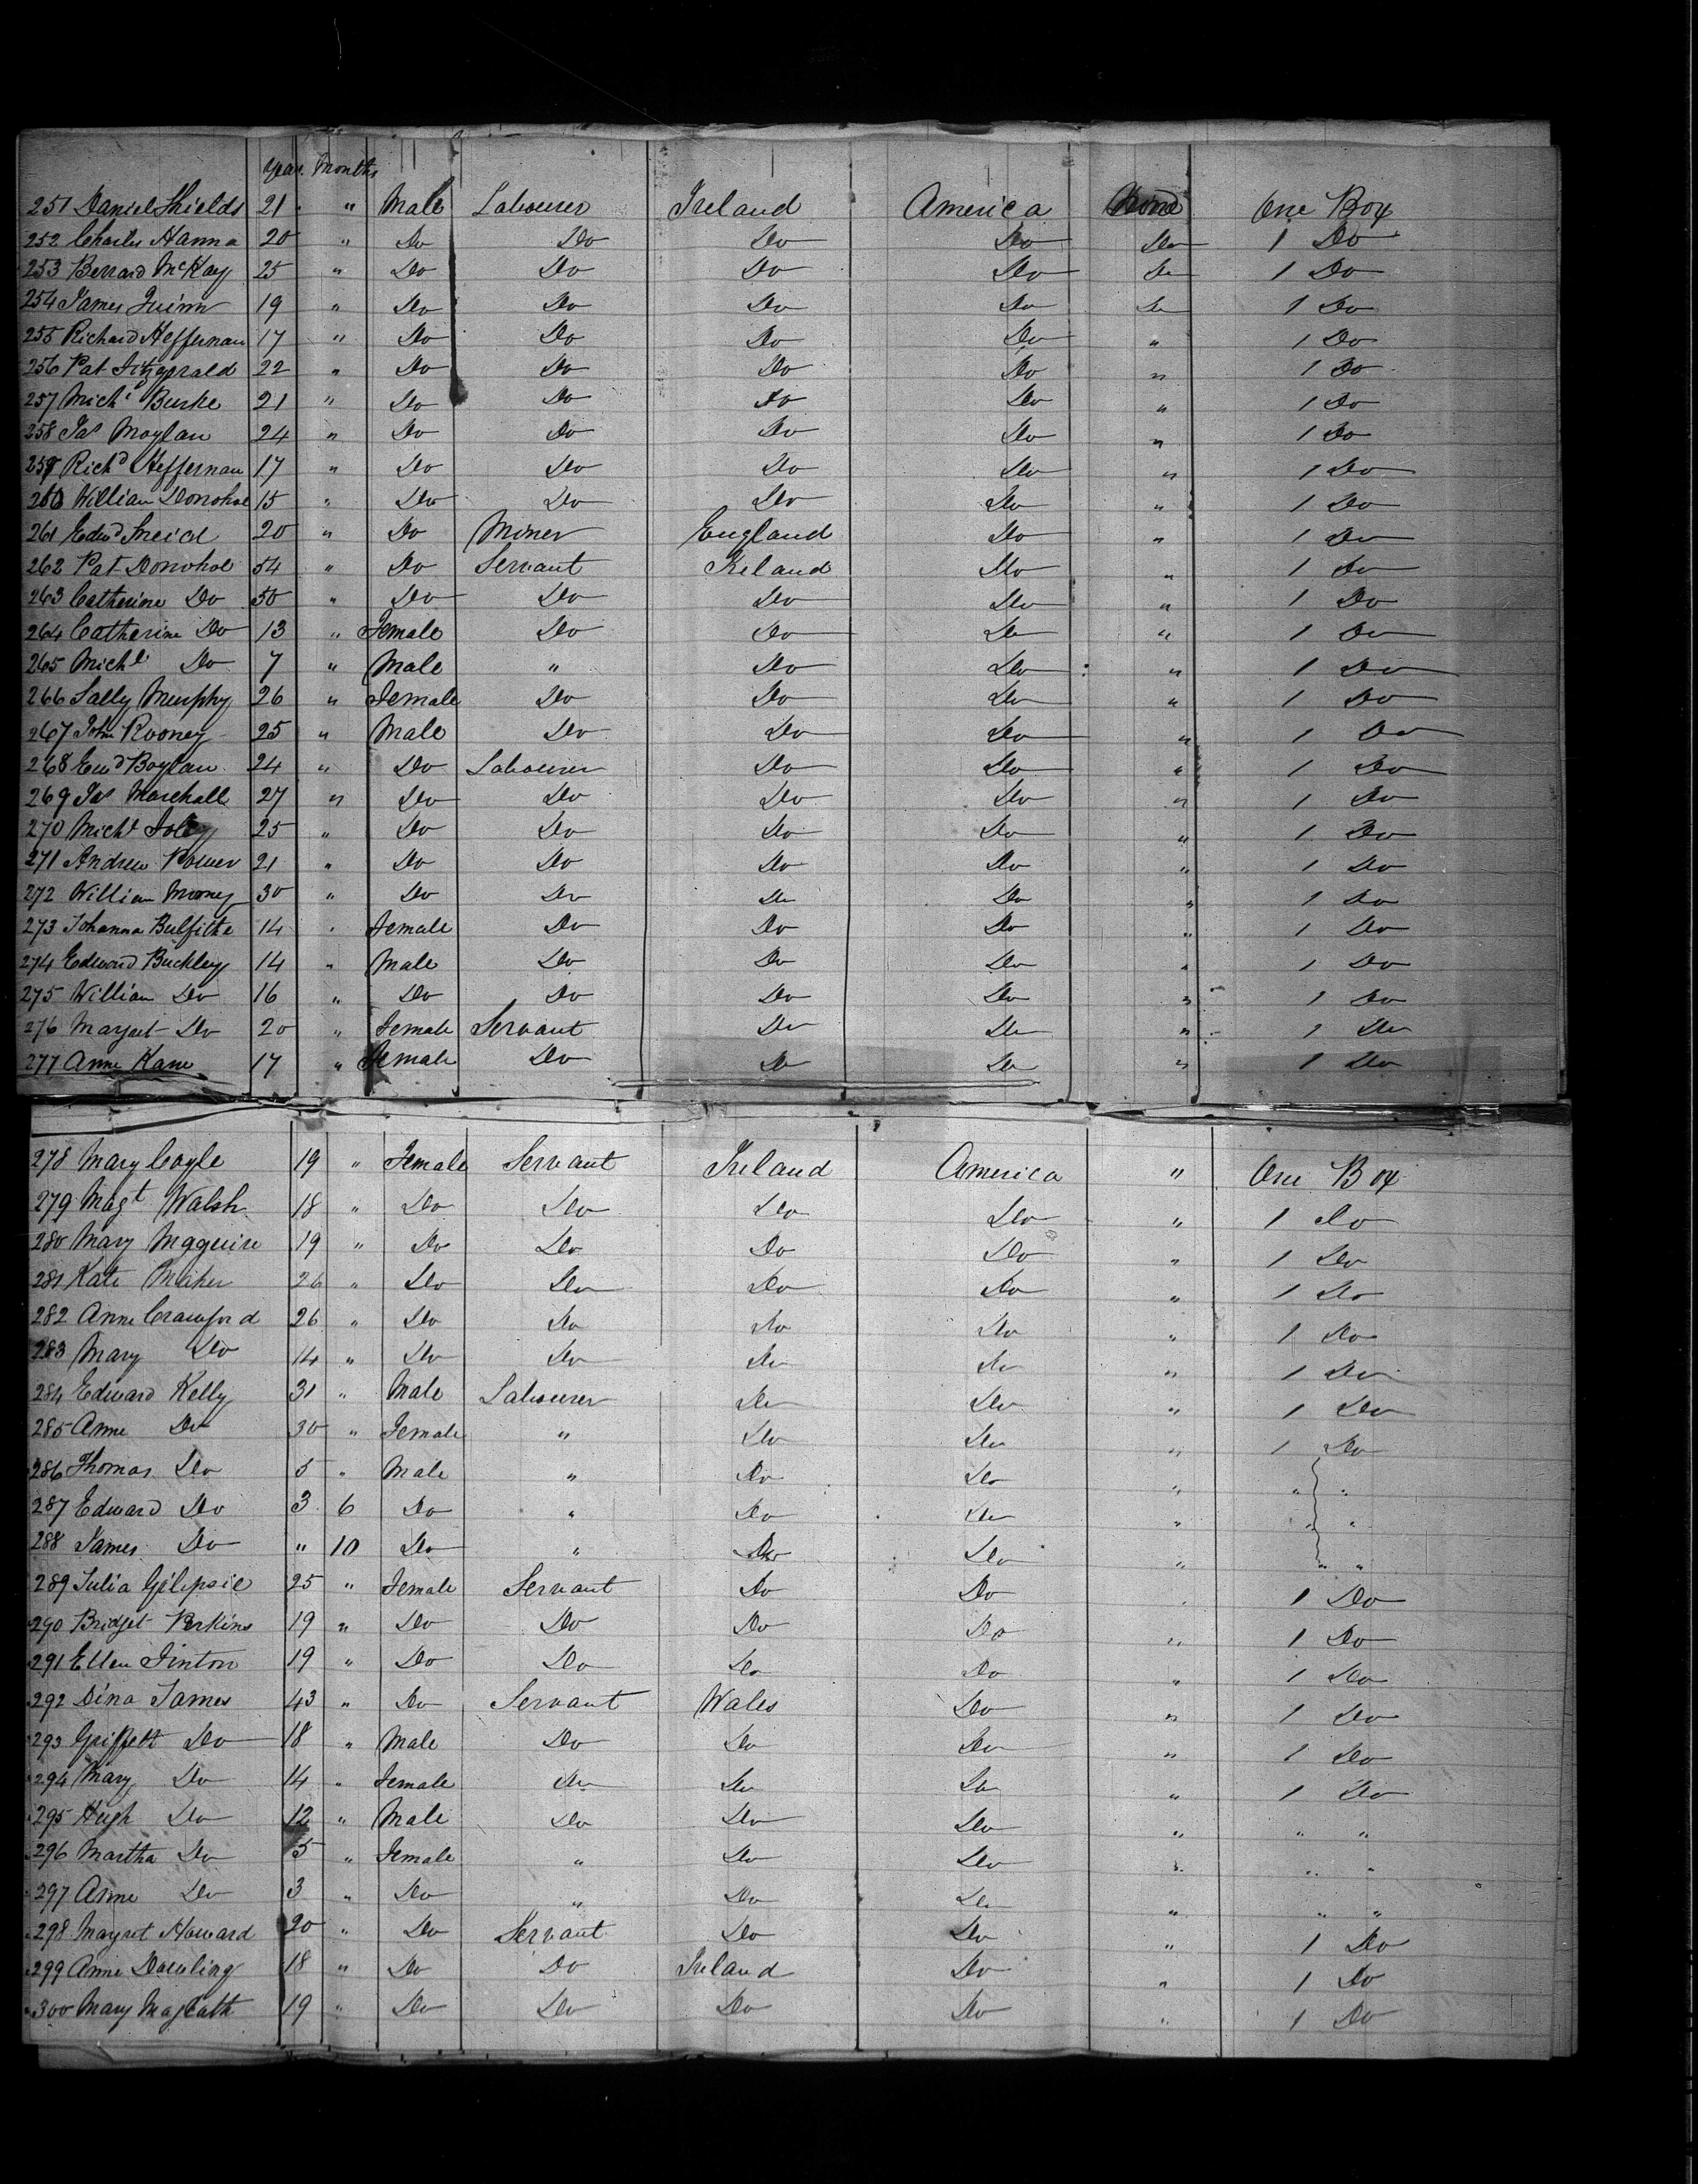 Years Months
251 Daniel Shields 21 " Male Labourer Ireland America None One Box
252 Charles Hanna 20 " Do Do Do Do Do 1 Do
253 Berrard McKay 25 " Do Do Do Do Do 1 Do
254 James Quinn 19 " Do Do Do Do Do 1 Do
255 Richard Heffernan 17 " Do Do Do Do " 1 Do
256 Pat Fitzgerald 22 " Do Do Do Do " 1 Do
257 Michl Burke 21 " Do Do Do Do " 1 Do
258 Jas Moylan 24 " Do Do Do Do " 1 Do
259 Richd Heffernan 17 " Do Do Do Do " 1 Do
260 William Donohoe 15 " Do Do Do Do " 1 Do
261 Edwd 20 " Do Miner England Do " 1 Do
262 Pat Donohoe 54 " Do Servant Ireland Do " 1 Do
263 Catherine Do 50 " Do Do Do Do " 1 Do
264 Catherine Do 13 " Female Do Do Do " 1 Do
265 Michl Do 7 " Male " Do Do " 1 Do
266 Sally Murphy 26 " Female Do Do Do " 1 Do
267 John Rooney 25 " Male Do Do Do " 1 Do
268 Edwd Boylan 24 " Do Labourer Do Do " 1 Do
269 Jas Marshall 27 " Do Do Do Do " 1 Do
270 Michl Foley 25 " Do Do Do Do " 1 Do
271 Andrew Power 21 " Do Do Do Do " 1 Do
272 William Mooney 30 " Do Do Do Do " 1 Do
273 Johanna Bulfithe 14 " Female Do Do Do " 1 Do
274 Edward Buckley 14 " Male Do Do Do " 1 Do
275 William Do 16 " Do Do Do Do " 1 Do
276 Margret Do 20 " Female Servant Do Do " 1 Do
277 Anne Kane 17 " Female Do Do Do " 1 Do
278 Mary Coyle 19 " Female Servant Ireland America " One Box
279 Magt Walsh 18 " Do Do Do Do " 1 Do
280 Mary Maguire 19 " Do Do Do Do " 1 Do
281 Kate Meher 26 " Do Do Do Do " 1 Do
282 Anne Crawford 26 " Do Do Do Do " 1 Do
283 Mary Do 14 " Do Do Do Do " 1 Do
284 Edward Kelly 31 " Male Labourer Do Do " 1 Do
285 Anne Do 30 " Female " Do Do " 1 Do
286 Thomas Do 5 " Male " Do Do " " "
287 Edward Do 3 6 Do " Do Do " " "
288 James Do " 10 Do " Do Do " " "
289 Julia Gilipsie 25 " Female Servant Do Do " 1 Do
290 Bridget Perkins 19 " Do Do Do Do " 1 Do
291 Ellen Finton 19 " Do Do Do Do " 1 Do
292 Dina James 43 " Do Servant Wales Do " 1 Do
293 Griffeth Do 18 " Male Do Do Do " 1 Do
294 Mary Do 14 " Female Do Do Do " 1 Do
295 Hugh Do 12 " Male Do Do Do " " "
296 Martha Do 5 " Female " Do Do " " "
297 Anne Do 3 " Do " Do Do " " "
298 Margret Howard 20 " Do Servant Do Do " 1 Do
299 Anne Dowling 18 " Do Do Ireland Do " 1 Do
300 Mary Magrath 19 " Do Do Do Do " 1 Do